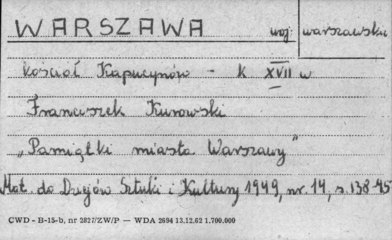 WARSZAWA woj. warszawskie
Kościół Kapucynów - k. XVII w
Franciszek Kurowski
„Pamiątki miasta Warszawy"
Mat. do Dziejów Sztuki i Kultury 1949, nr. 14, s. 138-45
CWD - B-15-b, nr 2827/ZW/P — WDA 2694 13.12.62 1.700.000